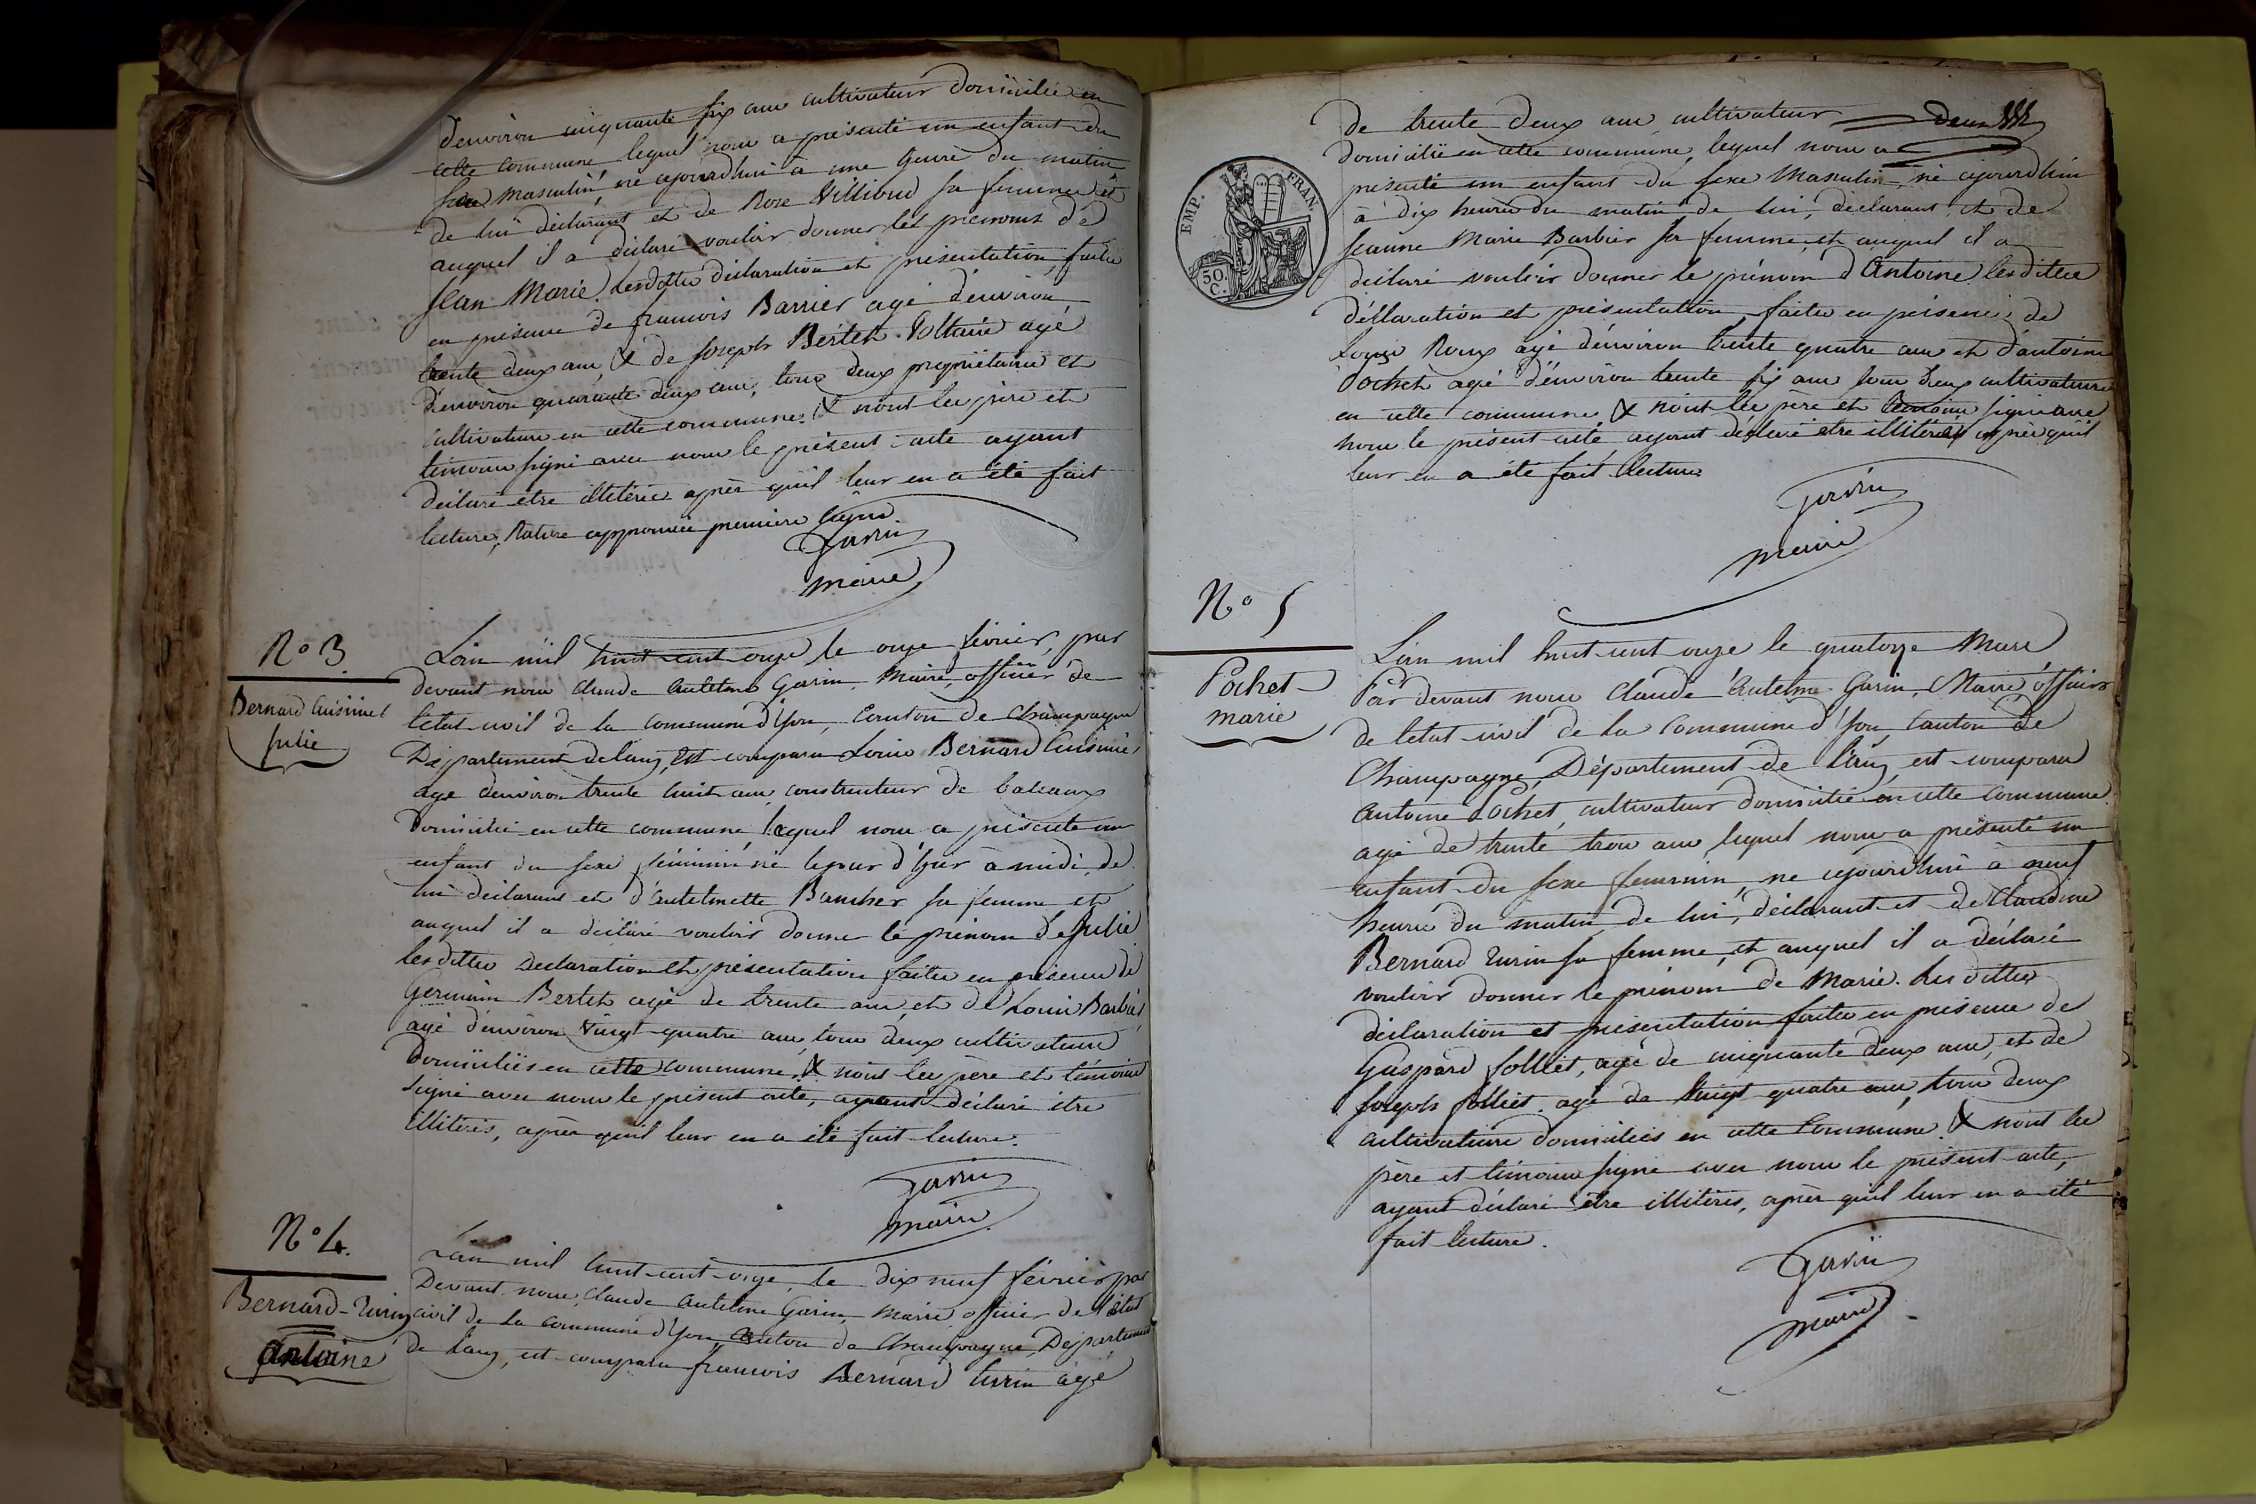 d'environ cinquante six ans cultivateur domicilié en
cette commune lequel nous a présenté un enfant du
sexe masculin, né ajourdhui à une heure du matin
de lui déclarant et de Rose Villioud sa femme et
auquel il a déclaré vouloir donner les prénoms de
Jean Marie. Lesdittes déclaration et présentation faites
en présence de francois Barrier agé d'environ
trente deux ans, & de Joseph Bertet Voltaire agé
d'environ quarante deux ans, tous deux propriétaires et
cultivateurs en cette commune. & n'ont les père et
témoins signé avec nous le présent acte ayant
déclaré etre illitérés après qu'il leur en a été fait
lecture, approuvée première ligne
Garin
maire
N° 3
Bernard Cuisinel
Julie
L'an mil huit cent onze le onze février, par
devant nous Claude Antelme Garin, Maire, officier de
l'état civil de la commune d'Yon, Canton de Champagne
Département de lain, est comparu Louis Bernard Cuisinel
age d'environ trente huit ans, constructeur de bateaux
domicilié en cette commune lequel nous a présenté un
enfant du sexe féminin né le jour d'hier à midi, de
lui déclarant et d'antelmette Bancher sa femme et
auquel il a déclaré vouloir donner le prénom de Julie
lesdittes Declaration et présentation faites en présence de
Germain Bertet agé de trente ans, et de Louis Barbier
agé d'environ vingt quatre ans, tous deux cultivateurs
domiciliés en cette commune. & n'ont les père et témoins
signé avec nous le présent acte, ayant déclaré être
illitérés, après qu'il leur en a été fait lecture.
Garin
maire
N° 4.
Bernard-Turin
Antoine
L'an mil huit cent onze, le dix neuf février par
Devant nous Claude Antelme Garin, Maire officier de l'état
civil de la commune d'Yon, Canton de Champagne, Département
de lain, est comparu francois Bernard turin âgé
de trente deux ans cultivateur deux
domicilié en cette commune, lequel nous a
présenté un enfant du sexe Masculin, né ajourdhui
à dix heures du matin de lui, déclarant, et de
Jeanne Marie Barbier sa femme et auquel il a
déclaré vouloir donner le prénom d'Antoine. lesdittes
déclaration et présentation, faites en présence de
Louis Roux agé d'environ trente quatre ans et d'antoine
Pochet agé d'environ trente six ans tous deux cultivateurs
en cette commune & n'ont les père et témoins signé avec
nous le présent acte, ayant déclaré etre illitérés, après qu'il
leur en a été fait lecture
Garin
maire
EMP. FRAN.
50 C.
N° 5
Pochet
marie
L'an mil huit cent onze le quatorze Mars
Par devant nous Claude Antelme Garin, Maire officier
de l'état civil de la Commune d'Yon, Canton de
Champagne, Département de l'ain, est comparu
Antoine Pochet, cultivateur domicilié en cette commune
agé de trente trois ans, lequel nous a présenté un
enfant du sexe feminin, né ajourdhui à neuf
heures du matin, de lui, déclarant et de Claudine
Bernard Turin sa femme, et auquel il a déclaré
vouloir donner le prénom de Marie. Lesdittes
déclaration et présentation faites en présence de
Gaspard folliet, agé de cinquante deux ans, et de
Joseph folliet, agé de vingt quatre ans, tous deux
cultivateurs domiciliés en cette Commune. & n'ont les
père et témoins signé avec nous le présent acte,
ayant déclaré être illitérés, après qu'il leur en a été
fait lecture.
Garin
maire